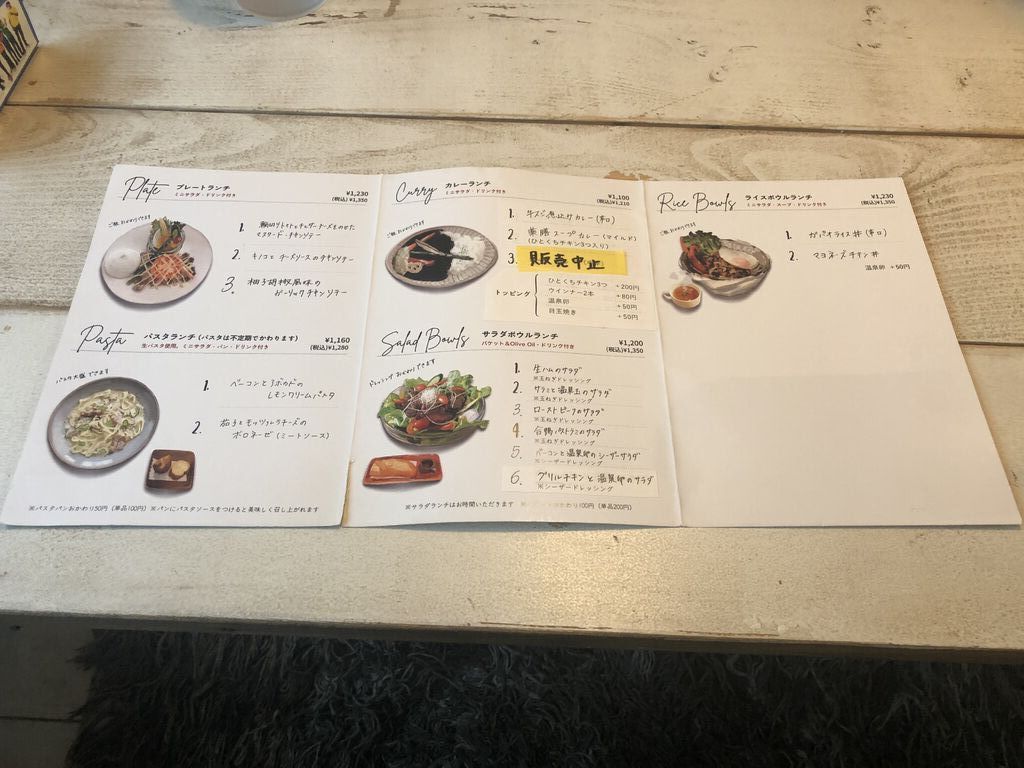 Plate プレートランチ
ミニサラダ・ドリンク付き
¥1,230
(税込)¥1,350
ご飯おかわりできます
1.
2. キノコとチーズソースのチキンソテー
3. 柚子胡椒風味の
ガーリックチキンソテー
Pasta パスタランチ (パスタは不定期でかわります)
生パスタ使用。ミニサラダ・パン・ドリンク付き
¥1,160
(税込)¥1,280
パスタ大盛できます
1. ベーコンとほうれん草の
レモンクリームパスタ
2. 茄子とモッツァレラチーズの
ボロネーゼ (ミートソース)
※パスタパンおかわり50円 (単品100円) ※パンにパスタソースをつけると美味しく召し上がれます
Curry カレーランチ
ミニサラダ・ドリンク付き
¥1,100
(税込)¥1,210
ご飯おかわりできます
1. 牛スジ煮込みカレー (辛口)
2. 薬膳スープカレー (マイルド)
(ひとくちチキン3つ入り)
3. 販売中止
トッピング
ひとくちチキン3つ +200円
ウインナー2本 +80円
温泉卵 +50円
目玉焼き +50円
Salad Bowls サラダボウルランチ
バケット&Olive Oil・ドリンク付き
¥1,200
(税込)¥1,350
ドレッシングおかわりできます
1. 生ハムのサラダ
※玉ねぎドレッシング
2. サラミと温泉玉のサラダ
※玉ねぎドレッシング
3. ローストビーフのサラダ
※玉ねぎドレッシング
4. 合鴨パストラミのサラダ
※玉ねぎドレッシング
5. ベーコンと温泉卵のシーザーサラダ
※シーザードレッシング
6. グリルチキンと温泉卵のサラダ
※シーザードレッシング
※サラダランチはお時間いただきます
わり100円 (単品200円)
Rice Bowls ライスボウルランチ
ミニサラダ・スープ・ドリンク付き
¥1,230
(税込)¥1,350
ご飯おかわりできます
1. ガパオライス丼 (辛口)
2. マヨネーズチキン丼
温泉卵 +50円